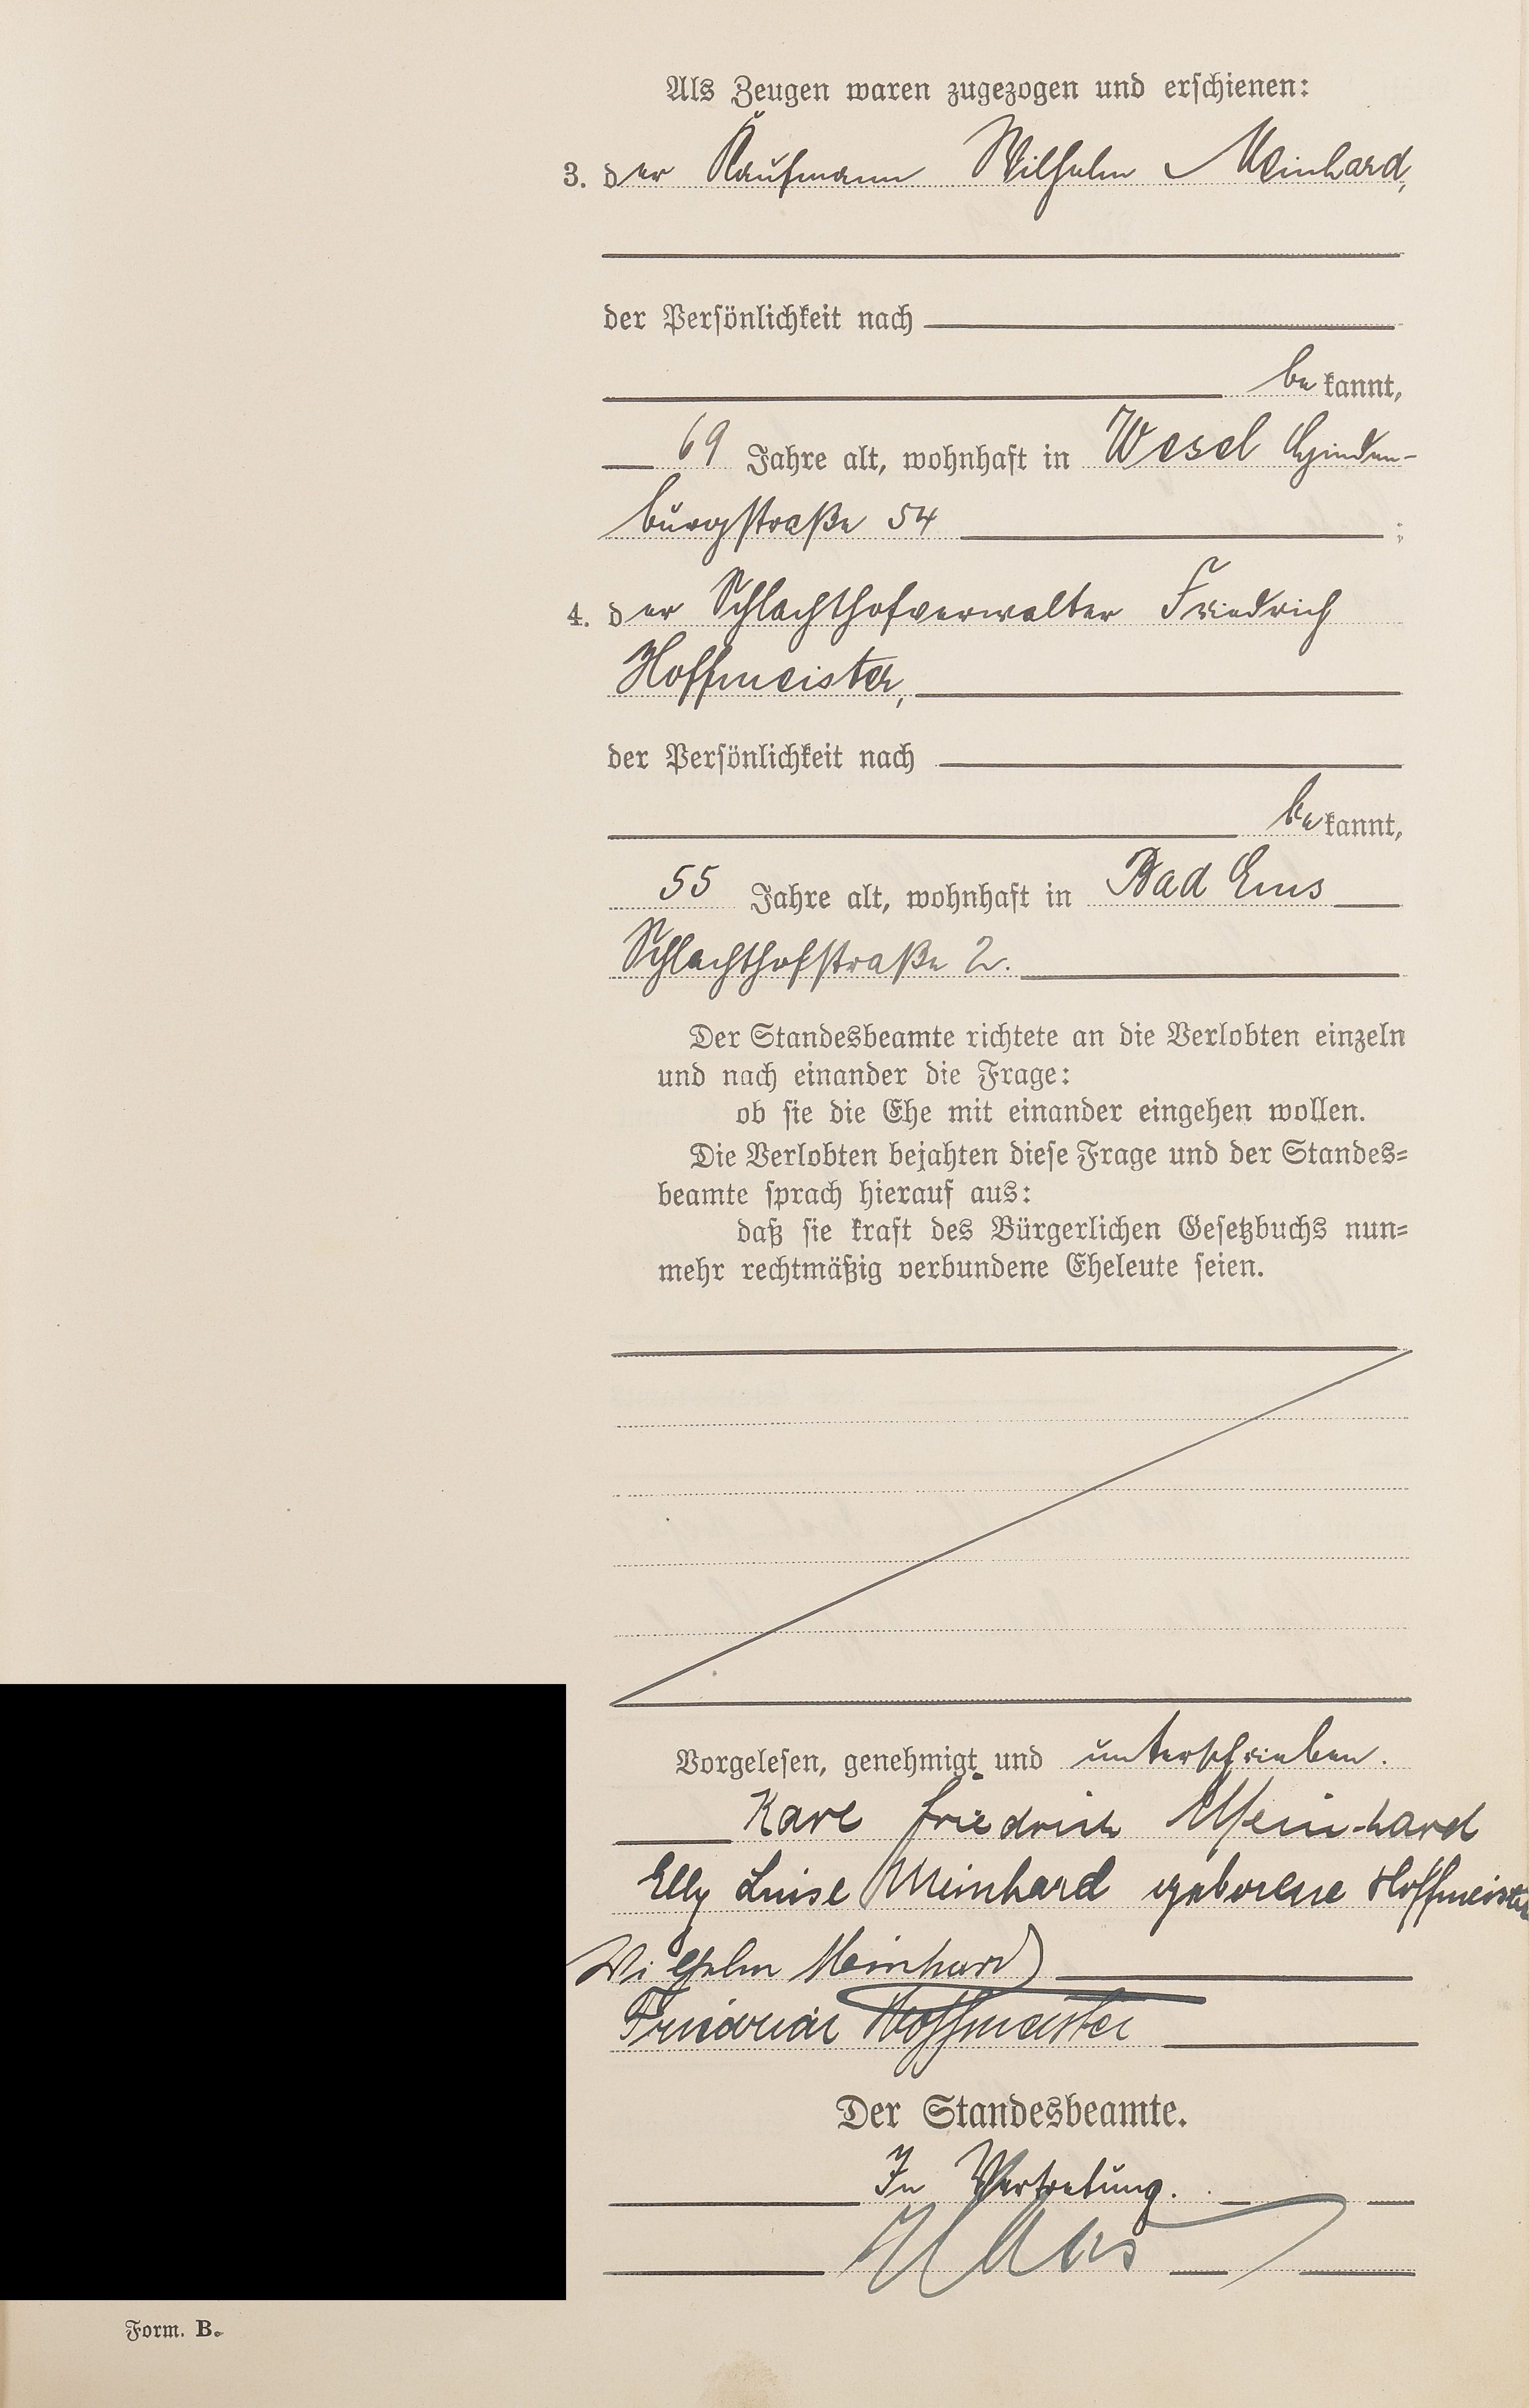 Als Zeugen waren zugezogen und erschienen:
3. der Kaufmann Wilhelm Meinhard,
der Persönlichkeit nach
bekannt,
69 Jahre alt, wohnhaft in Wesel Hinden-
burgstraße 54 ;
4. der Schlachthofverwalter Friedrich
Hoffmeister,
der Persönlichkeit nach
bekannt,
55 Jahre alt, wohnhaft in Bad Ems
Schlachthofstraße 2.
Der Standesbeamte richtete an die Verlobten einzeln
und nach einander die Frage:
ob sie die Ehe mit einander eingehen wollen.
Die Verlobten bejahten diese Frage und der Standes-
beamte sprach hierauf aus:
daß sie kraft des Bürgerlichen Gesetzbuchs nun-
mehr rechtmäßig verbundene Eheleute seien.
Vorgelesen, genehmigt und unterschrieben.
Karl Friedrich Meinhard
Elly Luise Meinhard geborene Hoffmeister
Wilhelm Meinhard
Friedrich Hoffmeister
Der Standesbeamte.
In Vertretung.
Form. B.